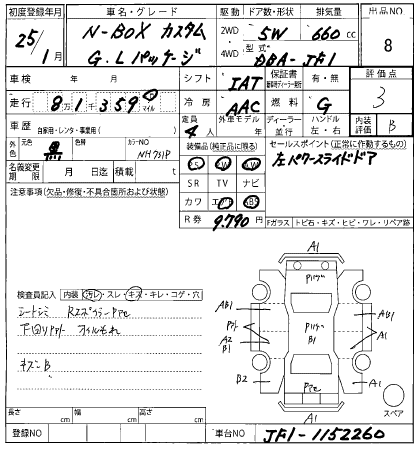 初度登録年月 車名・グレード 駆動 ドア数・形状 排気量 出品NO
25年 1月 N-BOX カスタム 2WD 5W 660cc 8
G.Lパッケージ 4WD 型式 DBA-JF1
車検 年 月 シフト IAT 保証書 有・無 評価点
走行 8万1千359 km マイル 冷房 AAC 燃料 G 3
車歴 自家用・レンタ・事業用( ) 定員 4人 外車モデル ディーラー・並行 ハンドル 左・右 内装評価 B
外色 元色 黒 色替 カラーNO NH731P 装備品(純正品に限る) セールスポイント(正常に作動するもの)
名義変更期限 月 日迄 積載 t PS PW AW 左パワースライドドア
注意事項(欠品・修復・不具合箇所および状態) SR TV ナビ
カワ エアB ABS
R券 9.790円
Fガラス トビ石・キズ・ヒビ・ワレ・リペア跡
検査員記入 内装 汚レ・スレ・キズ・キレ・コゲ・穴
シートシミ
下回りサビ オイルもれ
キズ B
A1
AB1 AB1
A2 B1 B1 A1
B2 A1
A1
スペア
長さ cm 幅 cm 高さ cm
登録NO 車台NO JF1-1152260